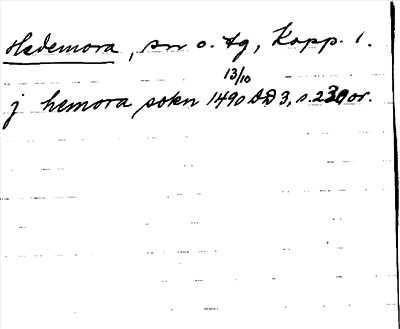 Hedemora, sn o. tg, Kopp. l.
13/10
j hemora sokn 1490 DD 3, s. 230 or.